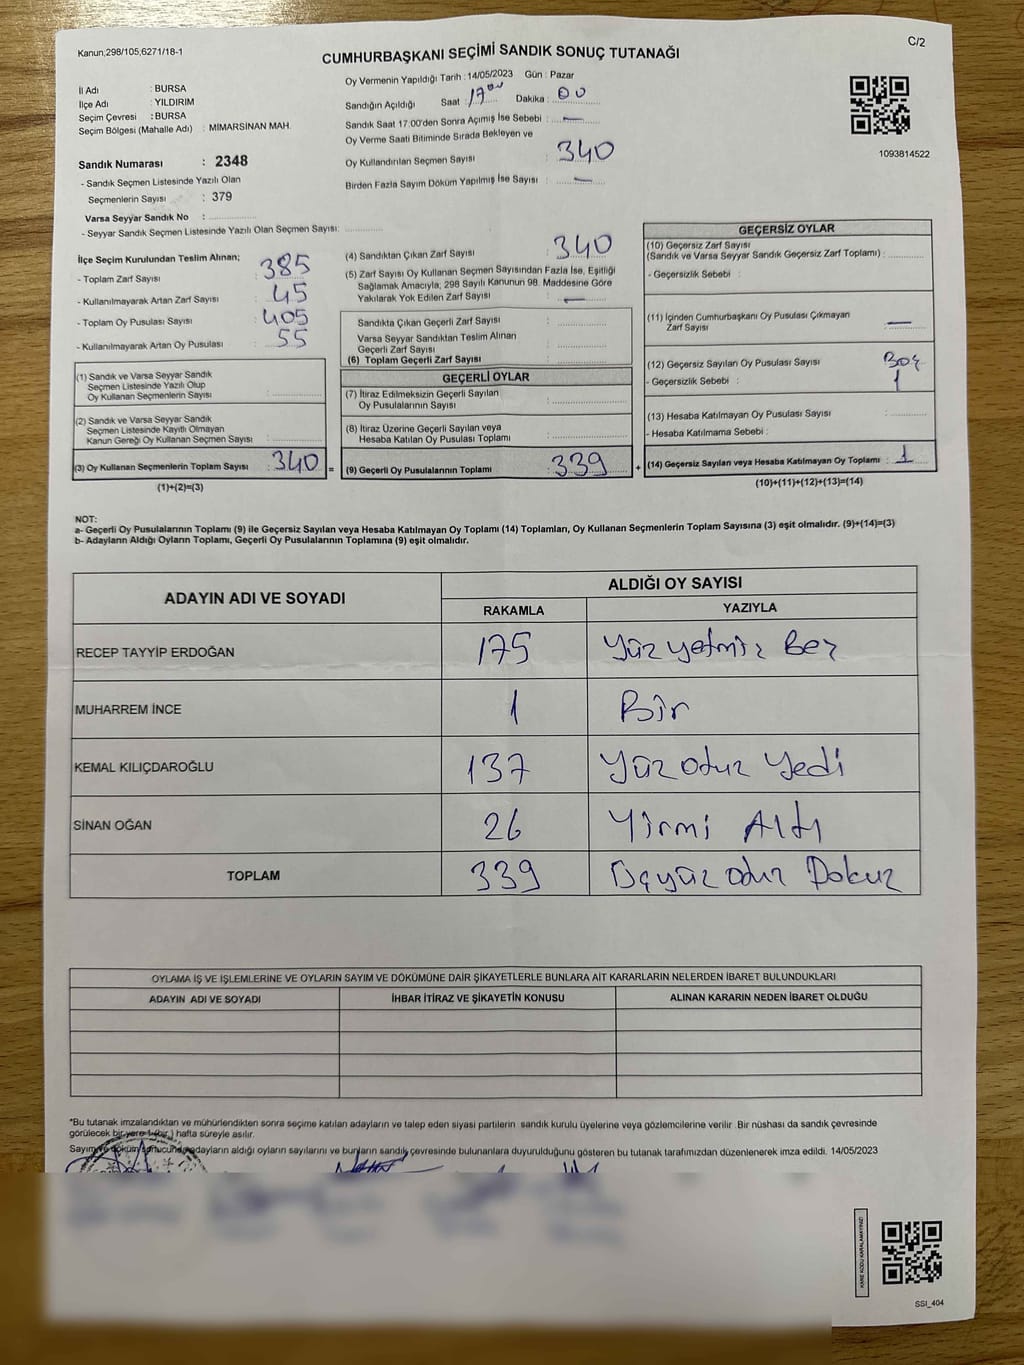 Kanun,298/105,6271/18-1
C/2
CUMHURBAŞKANI SEÇİMİ SANDIK SONUÇ TUTANAĞI
İl Adı : BURSA
İlçe Adı : YILDIRIM
Seçim Çevresi : BURSA
Seçim Bölgesi (Mahalle Adı) : MİMARSİNAN MAH.
Sandık Numarası : 2348
- Sandık Seçmen Listesinde Yazılı Olan
Seçmenlerin Sayısı : 379
Varsa Seyyar Sandık No :
- Seyyar Sandık Seçmen Listesinde Yazılı Olan Seçmen Sayısı:
Oy Vermenin Yapıldığı Tarih : 14/05/2023 Gün : Pazar
Sandığın Açıldığı Saat : 17:00 Dakika : 00
Sandık Saat 17:00'den Sonra Açımış İse Sebebi : —
Oy Verme Saati Bitiminde Sırada Bekleyen ve
Oy Kullandırılan Seçmen Sayısı : 340
Birden Fazla Sayım Döküm Yapılmış İse Sayısı : —
1093814522
İlçe Seçim Kurulundan Teslim Alınan;
- Toplam Zarf Sayısı : 385
- Kullanılmayarak Artan Zarf Sayısı : 45
- Toplam Oy Pusulası Sayısı : 405
- Kullanılmayarak Artan Oy Pusulası : 55
(1) Sandık ve Varsa Seyyar Sandık
Seçmen Listesinde Yazılı Olup
Oy Kullanan Seçmenlerin Sayısı :
(2) Sandık ve Varsa Seyyar Sandık
Seçmen Listesinde Kayıtlı Olmayan
Kanun Gereği Oy Kullanan Seçmen Sayısı :
(3) Oy Kullanan Seçmenlerin Toplam Sayısı : 340 =
(1)+(2)=(3)
(4) Sandıktan Çıkan Zarf Sayısı : 340
(5) Zarf Sayısı Oy Kullanan Seçmen Sayısından Fazla İse, Eşitliği
Sağlamak Amacıyla; 298 Sayılı Kanunun 98. Maddesine Göre
Yakılarak Yok Edilen Zarf Sayısı : —
Sandıkta Çıkan Geçerli Zarf Sayısı :
Varsa Seyyar Sandıktan Teslim Alınan
Geçerli Zarf Sayısı :
(6) Toplam Geçerli Zarf Sayısı :
GEÇERLİ OYLAR
(7) İtiraz Edilmeksizin Geçerli Sayılan
Oy Pusulalarının Sayısı :
(8) İtiraz Üzerine Geçerli Sayılan veya
Hesaba Katılan Oy Pusulası Toplamı :
(9) Geçerli Oy Pusulalarının Toplamı : 339 +
GEÇERSİZ OYLAR
(10) Geçersiz Zarf Sayısı
(Sandık ve Varsa Seyyar Sandık Geçersiz Zarf Toplamı) :
- Geçersizlik Sebebi :
(11) İçinden Cumhurbaşkanı Oy Pusulası Çıkmayan
Zarf Sayısı : —
(12) Geçersiz Sayılan Oy Pusulası Sayısı : Boş
- Geçersizlik Sebebi : 1
(13) Hesaba Katılmayan Oy Pusulası Sayısı :
- Hesaba Katılmama Sebebi :
(14) Geçersiz Sayılan veya Hesaba Katılmayan Oy Toplamı : 1
(10)+(11)+(12)+(13)=(14)
NOT:
a- Geçerli Oy Pusulalarının Toplamı (9) ile Geçersiz Sayılan veya Hesaba Katılmayan Oy Toplamı (14) Toplamları, Oy Kullanan Seçmenlerin Toplam Sayısına (3) eşit olmalıdır. (9)+(14)=(3)
b- Adayların Aldığı Oyların Toplamı, Geçerli Oy Pusulalarının Toplamına (9) eşit olmalıdır.
ADAYIN ADI VE SOYADI
ALDIĞI OY SAYISI
RAKAMLA YAZIYLA
RECEP TAYYİP ERDOĞAN 175 Yüz yetmiş Beş
MUHARREM İNCE 1 Bir
KEMAL KILIÇDAROĞLU 137 Yüz otuz Yedi
SİNAN OĞAN 26 Yirmi Altı
TOPLAM 339 Üçyüz otuz Dokuz
OYLAMA İŞ VE İŞLEMLERİNE VE OYLARIN SAYIM VE DÖKÜMÜNE DAİR ŞİKAYETLERLE BUNLARA AİT KARARLARIN NELERDEN İBARET BULUNDUKLARI
ADAYIN ADI VE SOYADI İHBAR İTİRAZ VE ŞİKAYETİN KONUSU ALINAN KARARIN NEDEN İBARET OLDUĞU
*Bu tutanak imzalandıktan ve mühürlendikten sonra seçime katılan adayların ve talep eden siyasi partilerin sandık kurulu üyelerine veya gözlemcilerine verilir. Bir nüshası da sandık çevresinde
görülecek bir yere 1 (bir) hafta süreyle asılır.
Sayım ve döküm sonucunda adayların aldığı oyların sayılarını ve bunların sandık çevresinde bulunanlara duyurulduğunu gösteren bu tutanak tarafımızdan düzenlenerek imza edildi. 14/05/2023
KARE KODU KARALAMAYINIZ!
SSI_404